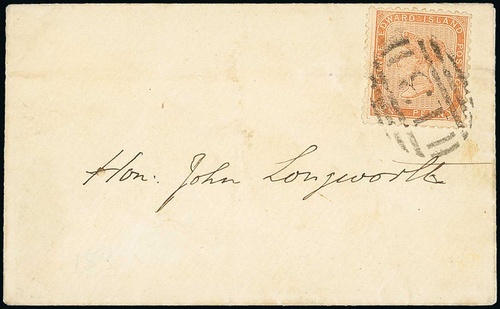 EDWARD ISLAND PO
PE
Hon: John Longworth